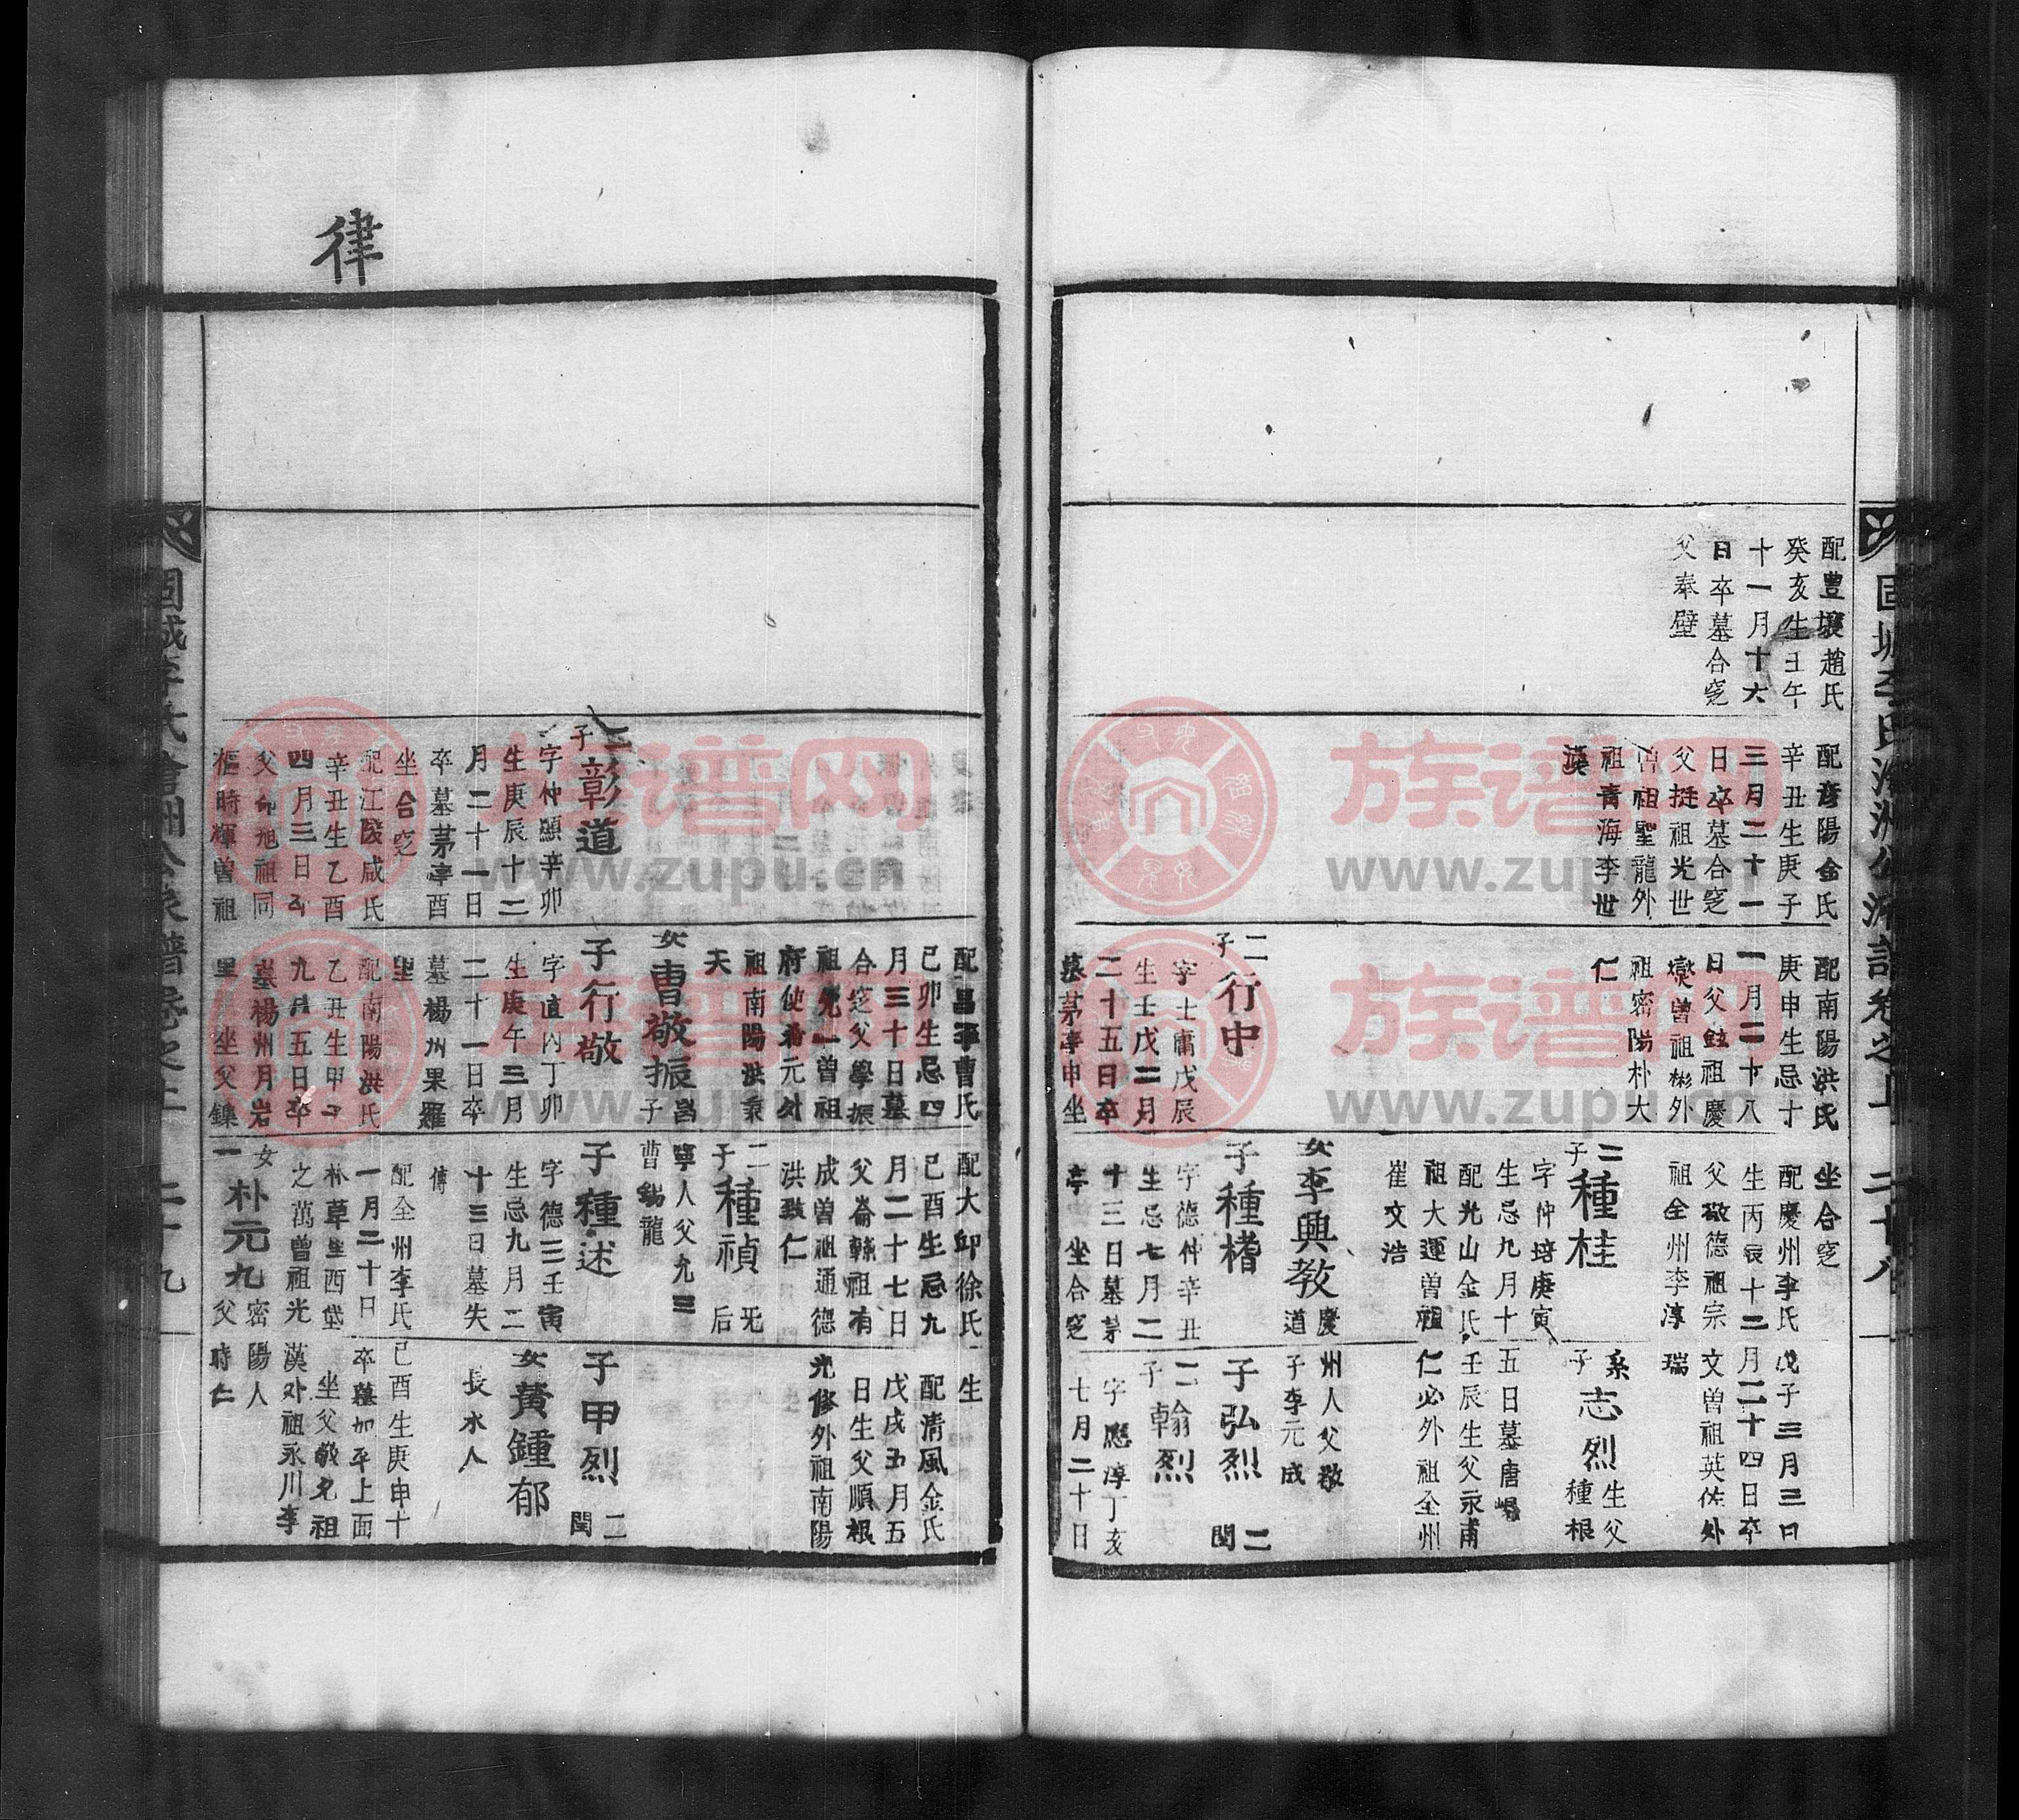 配豊壤趙氏
癸亥生壬午
十一月十六
日卒墓合窆
父奉壁
配彦陽金氏
辛丑生庚子
三月二十一
日卒墓合窆
父挺祖光世
曽祖聖龍外
祖青海李世
瑛
配南陽洪氏
庚申生忌十
一月二十八
日父鉉祖慶
爕曽祖彬外
祖密陽朴大
仁
二
子
行中
字士庸戊辰
生壬戊二月
二十五日卒
墓茅亭申坐
坐合窆
配慶州李氏
生丙辰十二
父敬德祖宗
祖全州李淳
二
子
種桂
字仲培庚寅
生忌九月十
配光山金氏
祖大運曽祖
崔文浩
女
李興教
慶
道
子種楷
字德仲辛丑
生忌七月二
十三日墓茅
亭 坐合窆
戊子三月三日
月二十四日卒
文曽祖英佐外
瑞
系
子
志烈
生父
種根
五日墓唐崐
壬辰生父永甫
仁必外祖全州
州人父敬
子李元成
子弘烈
二
閏
二
子
翰烈
字應淳丁亥
七月二十日
律
二
子
彰道
字仲顯辛卯
生庚辰十二
月二十一日
卒墓茅亭酉
坐合窆
配江陵咸氏
辛丑生乙酉
四月三日卒
父命旭祖同
樞時輝曽祖
配昌寧曹氏
己卯生忌四
月三十日墓
合窆父學振
祖允一曽祖
府使希元外
祖南陽洪秉
天
女
曺敬振
昌
子
子行敬
字直内丁卯
生庚午三月
二十一日卒
墓楊州果羅
里
配南陽洪氏
乙丑生甲子
九月五日卒
墓楊州月岩
里 坐父鎳
配大邱徐氏
己酉生忌九
月二十七日
父崙轃祖有
成曽祖通德
洪致仁
二
子
種禎
无
后
寧人父允三
曹錫龍
子種述
字德三壬寅
生忌九月二
十三日墓失
傳
配全州李氏
一月二十日
朴草里西岱
之萬曽祖光
女
一
朴元九
密
父
生
配清風金氏
戊戌五月五
日生父順根
光修外祖南陽
子甲烈
二
閏
女
黃鍾郁
長水人
己酉生庚申十
卒墓加平上面
坐父敬允祖
漢外祖永川李
陽人
時仁
二十八
二十九
www.zupu.cn
族谱网
www.zupu.cn
族谱网
www.zupu.cn
族谱网
www.zupu.cn
族谱网